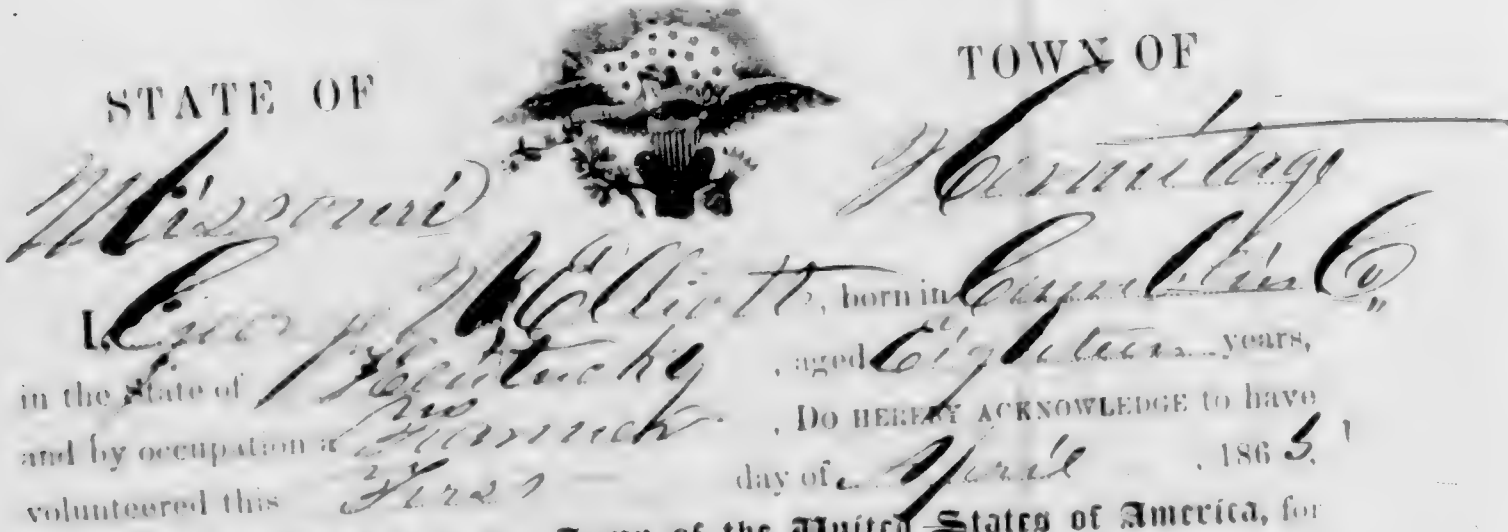 STATE OF
TOWN OF
Missouri
Hermitage
I, George W Elliott, born in Co
in the State of Kentucky, aged Eighteen years,
and by occupation a, Do HEREBY ACKNOWLEDGE to have
volunteered this First day of April, 1865,
Army of the United States of America, for